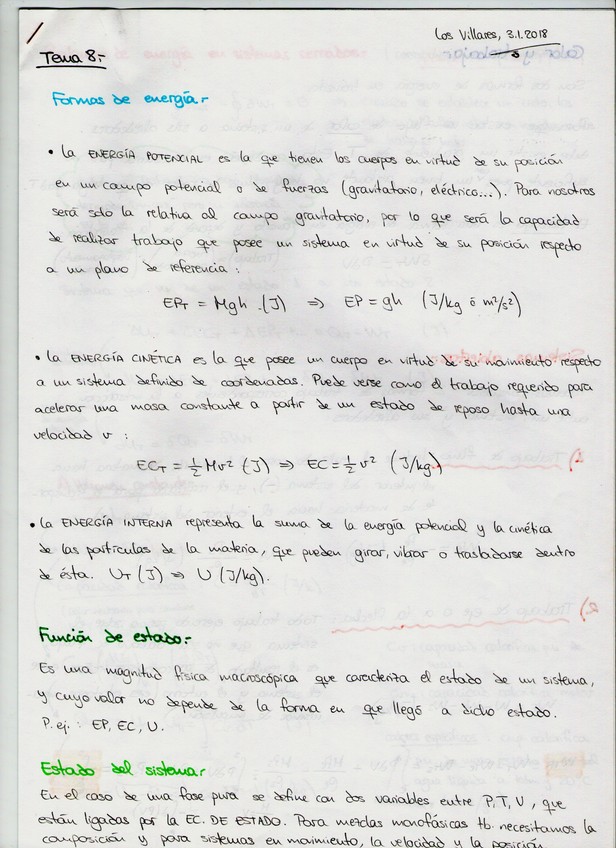 Los Villares, 3.1.2018
Tema 8:-
Formas de energía.-
• La ENERGÍA POTENCIAL es la que tienen los cuerpos en virtud de su posición
en un campo potencial o de fuerzas (gravitatorio, eléctrico...). Para nosotros
será solo la relativa al campo gravitatorio, por lo que será la capacidad
de realizar trabajo que posee un sistema en virtud de su posición respecto
a un plano de referencia :
EPT = Mgh (J) ⇒ EP = gh (J/kg ó m²/s²)
• La ENERGÍA CINÉTICA es la que posee un cuerpo en virtud de su movimiento respecto
a un sistema definido de coordenadas. Puede verse como el trabajo requerido para
acelerar una masa constante a partir de un estado de reposo hasta una
velocidad v :
ECT = ½ Mv² (J) ⇒ EC = ½ v² (J/kg)
• La ENERGÍA INTERNA representa la suma de la energía potencial y la cinética
de las partículas de la materia, que pueden girar, vibrar o trasladarse dentro
de ésta. UT (J) ⇒ U (J/kg).
Función de estado:-
Es una magnitud física macroscópica que caracteriza el estado de un sistema,
y cuyo valor no depende de la forma en que llegó a dicho estado.
P. ej. : EP, EC, U.
Estado del sistema.-
En el caso de una fase pura se define con dos variables entre P, T, U, que
están ligadas por la EC. DE ESTADO. Para mezclas monofásicas tb. necesitamos la
composición y para sistemas en movimiento, la velocidad y la posición